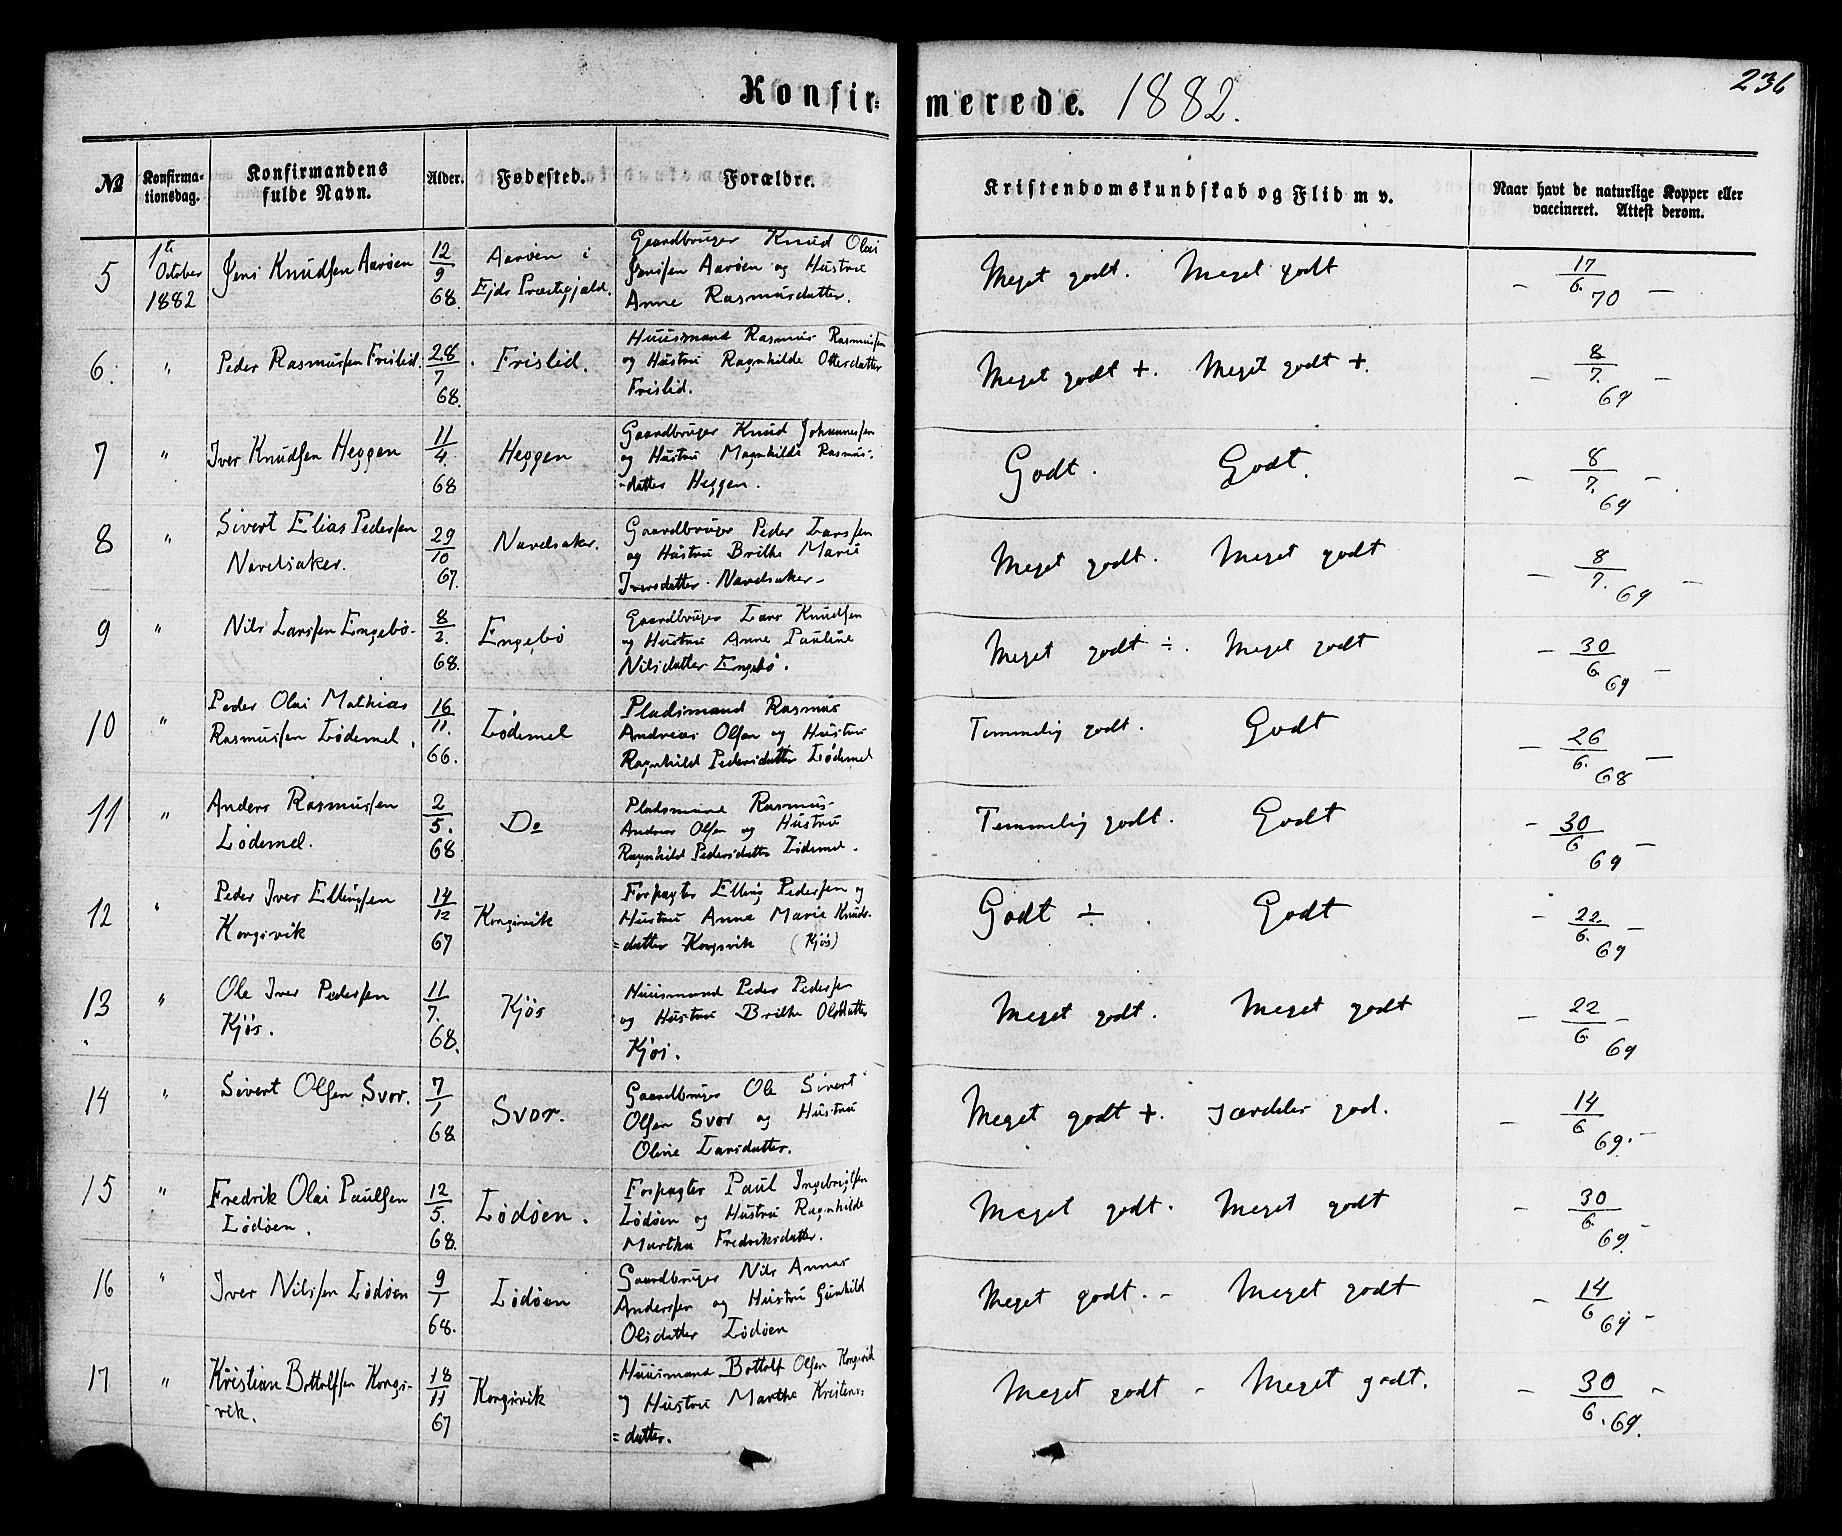 236
Konfir= merede. 1882.
№ Konfirma-tionsdag. Konfirmandens fulde Navn. Alder. Fødested. Forældre. Kristendomskundskab og Flid m v. Naar havt de naturlige Kopper eller vaccineret. Attest derom.
5 1te October 1882 Jens Knudsen Aarøen 12/9 68. Aarøen i Ejds Præstegjæld. Gaardbruger Knud Olai Jenssen Aarøen og Hustru Anne Rasmusdatter. Meget godt. Meget godt – 17/6. 70 –
6. " Peder Rasmussen Frislid. 28/7 68. Frislid. Huusmand Rasmus Rasmussen og Hustru Ragnhilde Ottersdatter Frislid. Meget godt +. Meget godt +. – 8/7. 69 –
7 " Iver Knudsen Heggen 11/4. 68 Heggen Gaardbruger Knud Johannessen og Hustru Magnhilde Rasmus-datter Heggen. Godt. Godt. – 8/7. 69 –
8 " Sivert Elias Pedersen Navelsaker. 29/10 67. Navelsaker. Gaardbruger Peder Larssen og Hustru Brithe Marie Iversdatter Navelsaker – Meget godt. Meget godt – 8/7. 69 –
9 " Nils Larssen Engebø. 8/2. 68. Engebø Gaardbruger Lars Knudsen og Hustru Anne Pauline Nilsdatter Engebø. Meget godt ÷. Meget godt – 30/6 69 –
10 " Peder Olai Mathias Rasmussen Lødemel. 16/11. 66. Lødemel Pladsmand Rasmus Andreas Olsen og Hustru Ragnhild Pedersdatter Lødemel Temmelig godt. Godt – 26/6. 68 –
11 " Anders Rasmussen Lødemel. 2/5. 68. Do Pladsmand Rasmus Andreas Olsen og Hustru Ragnhild Pedersdatter Lødemel. Temmelig godt. Godt – 30/6 69 –
12 " Peder Iver Ellingsen Kongsvik 14/12 67 Kongsvik Forpagter Elling Pedersen og Hustru Anne Marie Knuds=datter Kongsvik (Kjøs) Godt ÷. Godt – 22/6. 69 –
13 " Ole Iver Pedersen Kjøs. 11/7. 68. Kjøs Huusmand Peder Pedersen og Hustru Brithe Olsdatter Kjøs. Meget godt. Meget godt – 22/6 69 –
14 " Sivert Olsen Svor. 7/1 68 Svor. Gaardbruger Ole Sivert Olsen Svor og Hustru Oline Larsdatter. Meget godt +. særdeles god. – 14/6 69. –
15 " Fredrik Olai Paulsen Lødøen. 12/5. 68. Lødøen. Forpagter Paul Ingebrigtsen Lødøen og Hustru Ragnhilde Martha Fredriksdatter. Meget godt. Meget godt – 30/6 69. –
16 " Iver Nilssen Lødøen 9/1 68. Lødøen Gaardbruger Nils Annas Anderssen og Hustru Gunhild Olsdatter Lødøen Meget godt. – Meget godt – 14/6 69 –
17 " Kristian Bottolfsen Kongs-vik. 18/11 67 Kongsvik Huusmand Bottolf Olsen Kongsvik og Hustru Marthe Kristens=datter. Meget godt – Meget godt. – 30/6. 69. –